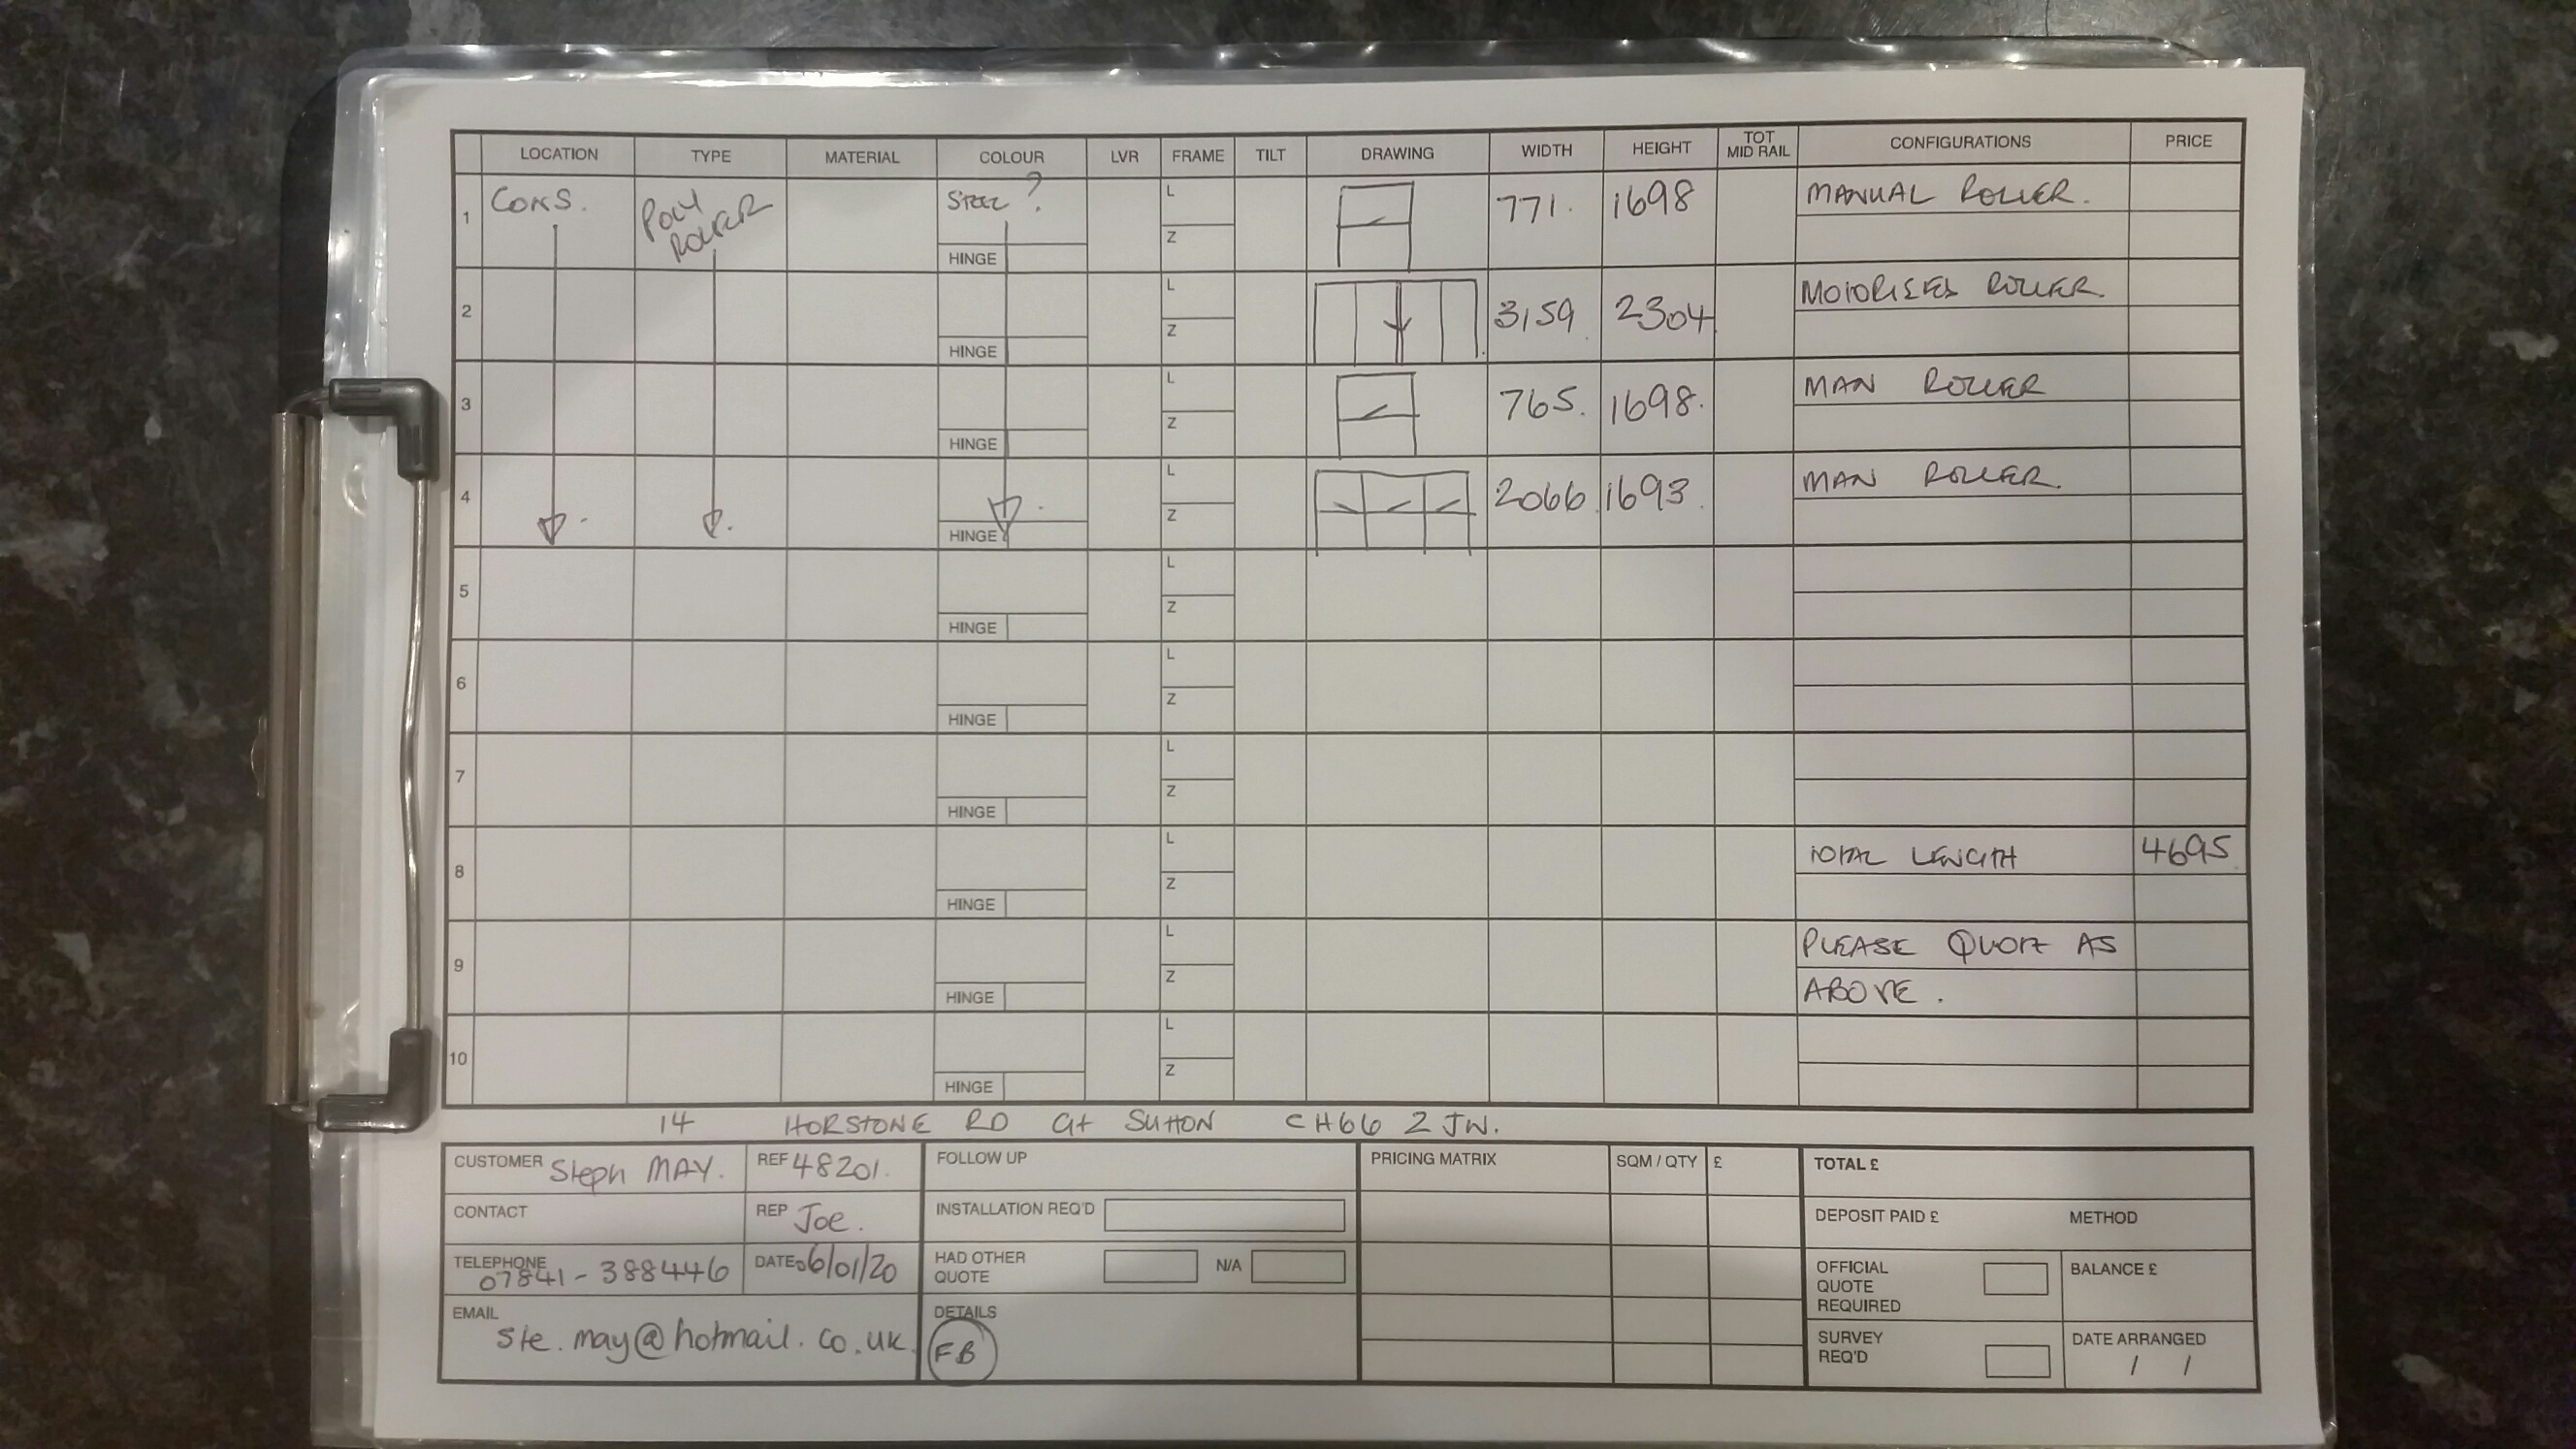 LOCATION TYPE MATERIAL COLOUR LVR FRAME TILT DRAWING WIDTH HEIGHT TOT MID RAIL CONFIGURATIONS PRICE
1 CONS. POLY ROLLER STEEL ? HINGE L Z 771. 1698 MANUAL ROLLER.
2 HINGE L Z 3159 2304 MOTORISED ROLLER.
3 HINGE L Z 765. 1698. MAN ROLLER
4 HINGE L Z 2066 1693. MAN ROLLER.
5 HINGE L Z
6 HINGE L Z
7 HINGE L Z
8 HINGE L Z TOTAL LENGTH 4695
9 HINGE L Z PLEASE QUOTE AS
ABOVE.
10 HINGE L Z
14 HORSTONE RD Gt SUttON CH66 2JW.
CUSTOMER Steph MAY. REF 48201.
CONTACT REP Joe.
TELEPHONE 07841-388446 DATE 06/01/20
EMAIL ste.may@hotmail.co.uk.
FOLLOW UP
INSTALLATION REQ'D
HAD OTHER QUOTE N/A
DETAILS
FB
PRICING MATRIX SQM / QTY £
TOTAL £
DEPOSIT PAID £ METHOD
OFFICIAL QUOTE REQUIRED BALANCE £
SURVEY REQ'D DATE ARRANGED
/ /